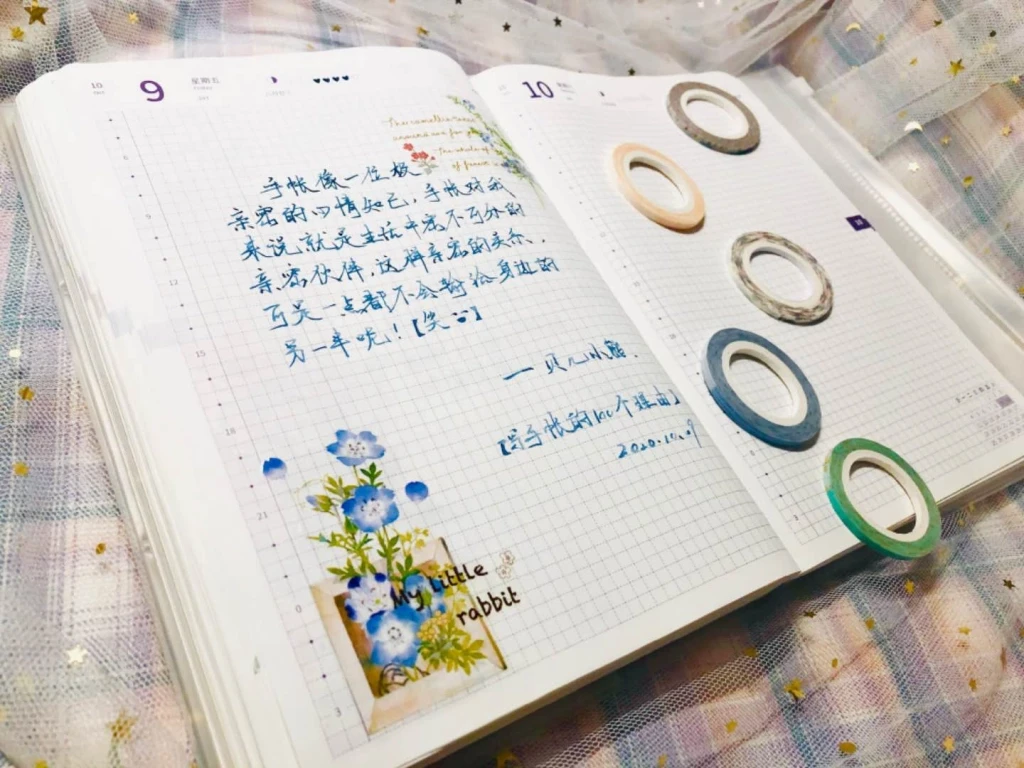 10
9
星期五
Friday
The camellia
around me for
The whole of
of
手帐像一位极
亲密的心情知己，手帐对我
来说就是生活中密不可分的
亲密伙伴，这样亲密的关系，
可是一点都不会输给身边的
另一半呢！【笑
——贝儿小熊.
【写手帐的100个理由】
2020.10.9
6
9
12
15
18
21
0
3
My little
rabbit
10